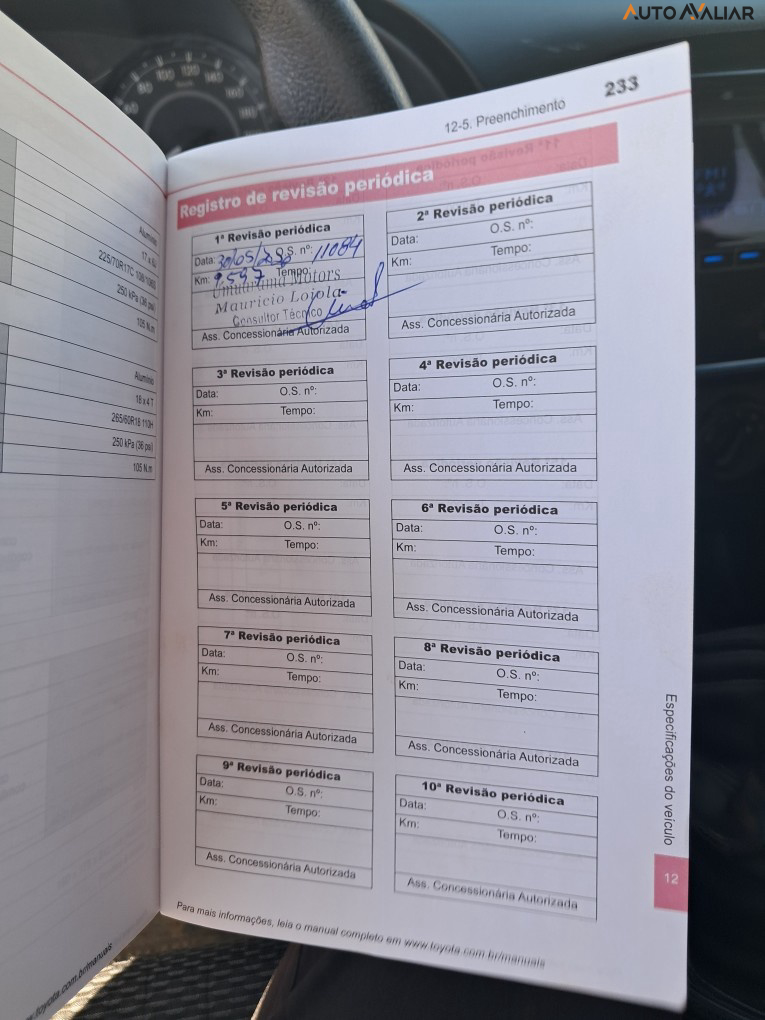 AUTOAVALIAR
233
12-5. Preenchimento
Registro de revisão periódica
1ª Revisão periódica
Data: 30/05/ O.S. nº: 11084
Km: 9.597 Tempo:
Umuarama Motors
Mauricio Lojola
Consultor Técnico
Ass. Concessionária Autorizada
2ª Revisão periódica
Data: O.S. nº:
Km: Tempo:
Ass. Concessionária Autorizada
3ª Revisão periódica
Data: O.S. nº:
Km: Tempo:
Ass. Concessionária Autorizada
4ª Revisão periódica
Data: O.S. nº:
Km: Tempo:
Ass. Concessionária Autorizada
5ª Revisão periódica
Data: O.S. nº:
Km: Tempo:
Ass. Concessionária Autorizada
6ª Revisão periódica
Data: O.S. nº:
Km: Tempo:
Ass. Concessionária Autorizada
7ª Revisão periódica
Data: O.S. nº:
Km: Tempo:
Ass. Concessionária Autorizada
8ª Revisão periódica
Data: O.S. nº:
Km: Tempo:
Ass. Concessionária Autorizada
9ª Revisão periódica
Data: O.S. nº:
Km: Tempo:
Ass. Concessionária Autorizada
10ª Revisão periódica
Data: O.S. nº:
Km: Tempo:
Ass. Concessionária Autorizada
Para mais informações, leia o manual completo em www.toyota.com.br/manuais
Especificações do veículo
12
Alumínio
225/70R17C
250 kPa (36 psi)
105 N.m
Alumínio
18 x
265/60R18 110H
250 kPa (36 psi)
105 N.m
toyota.com.br/manuais